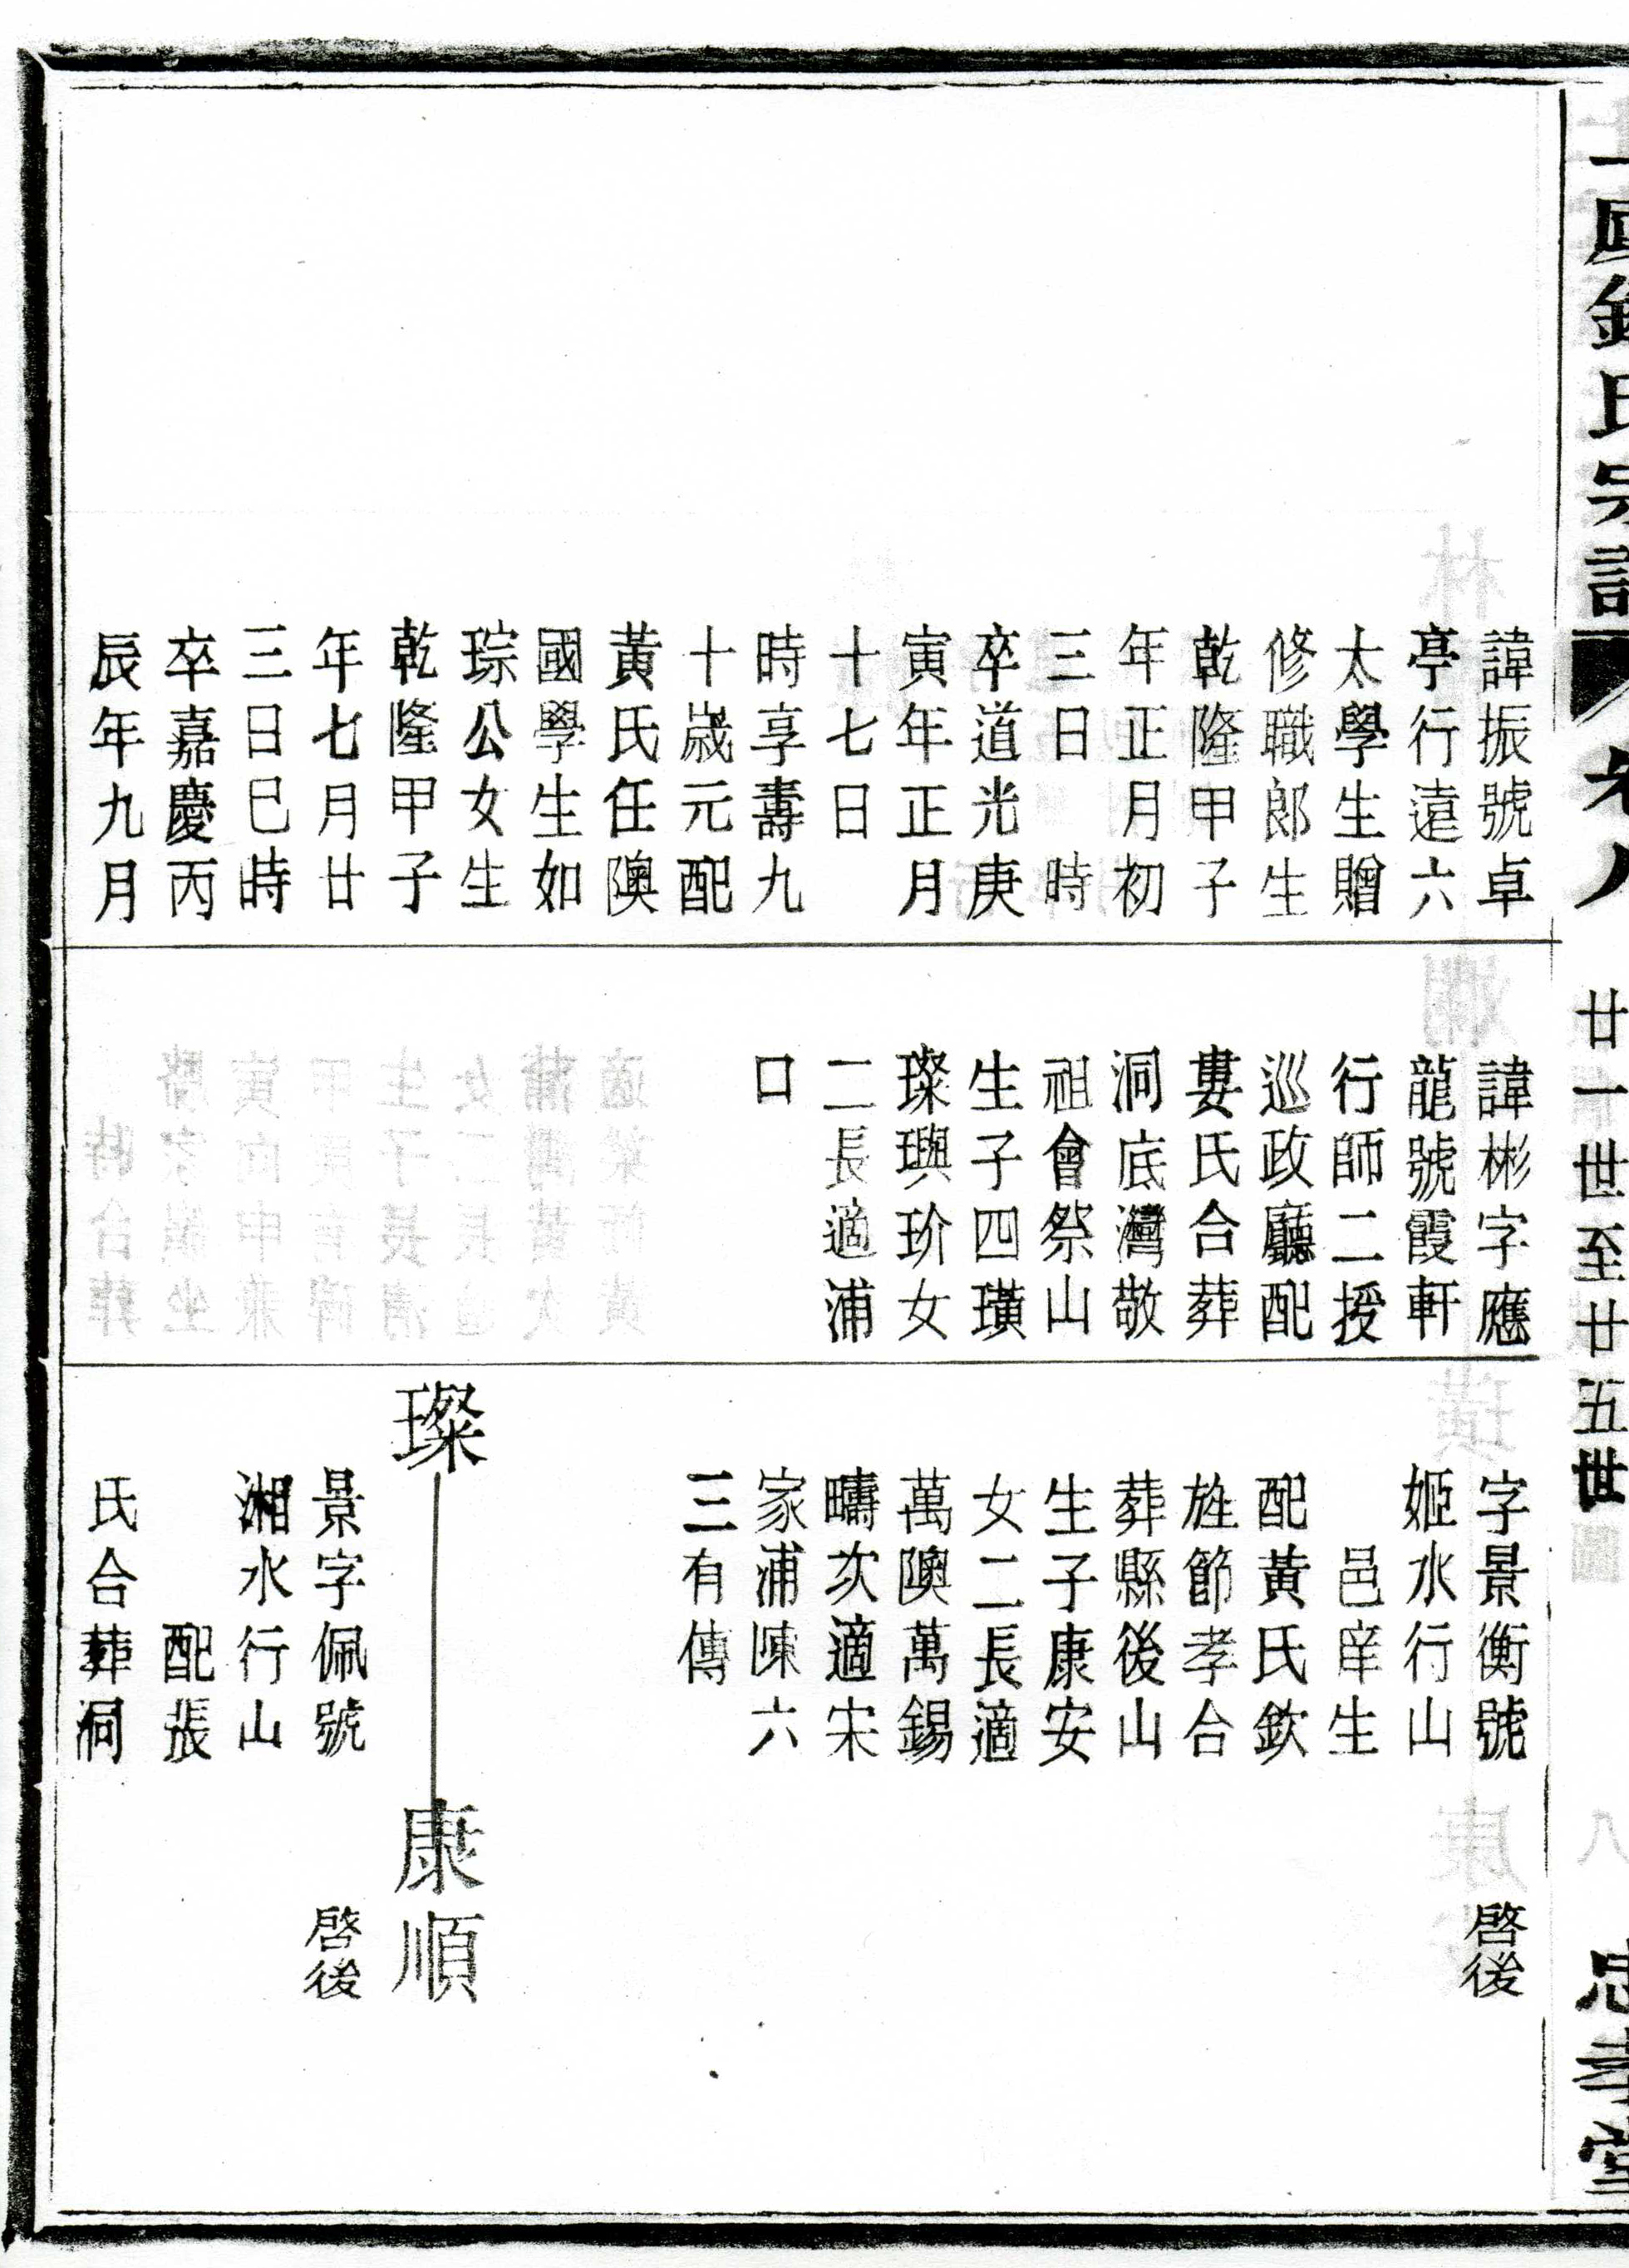 氏宗譜
卷八
廿一世至廿五世
忠孝堂
諱振號卓
亭行遠六
太學生贈
修職郎生
乾隆甲子
年正月初
三日時
卒道光庚
寅年正月
十七日
時享壽九
十歲元配
黃氏任隩
國學生如
琮公女生
乾隆甲子
年七月廿
三日巳時
卒嘉慶丙
辰年九月
諱彬字應
龍號霞軒
行師二授
巡政廳配
婁氏合葬
洞底灣敬
祖會祭山
生子四璜
璨璵玠女
二長適浦
口
字景衡號
姬水行山
邑庠生
配黃氏欽
旌節孝合
葬縣後山
生子康安
女二長適
萬隩萬錫
疇次適宋
家浦陳六
三有傳
啓後
璨
康順
景字佩號
湘水行山
配張
氏合葬洞
啓後